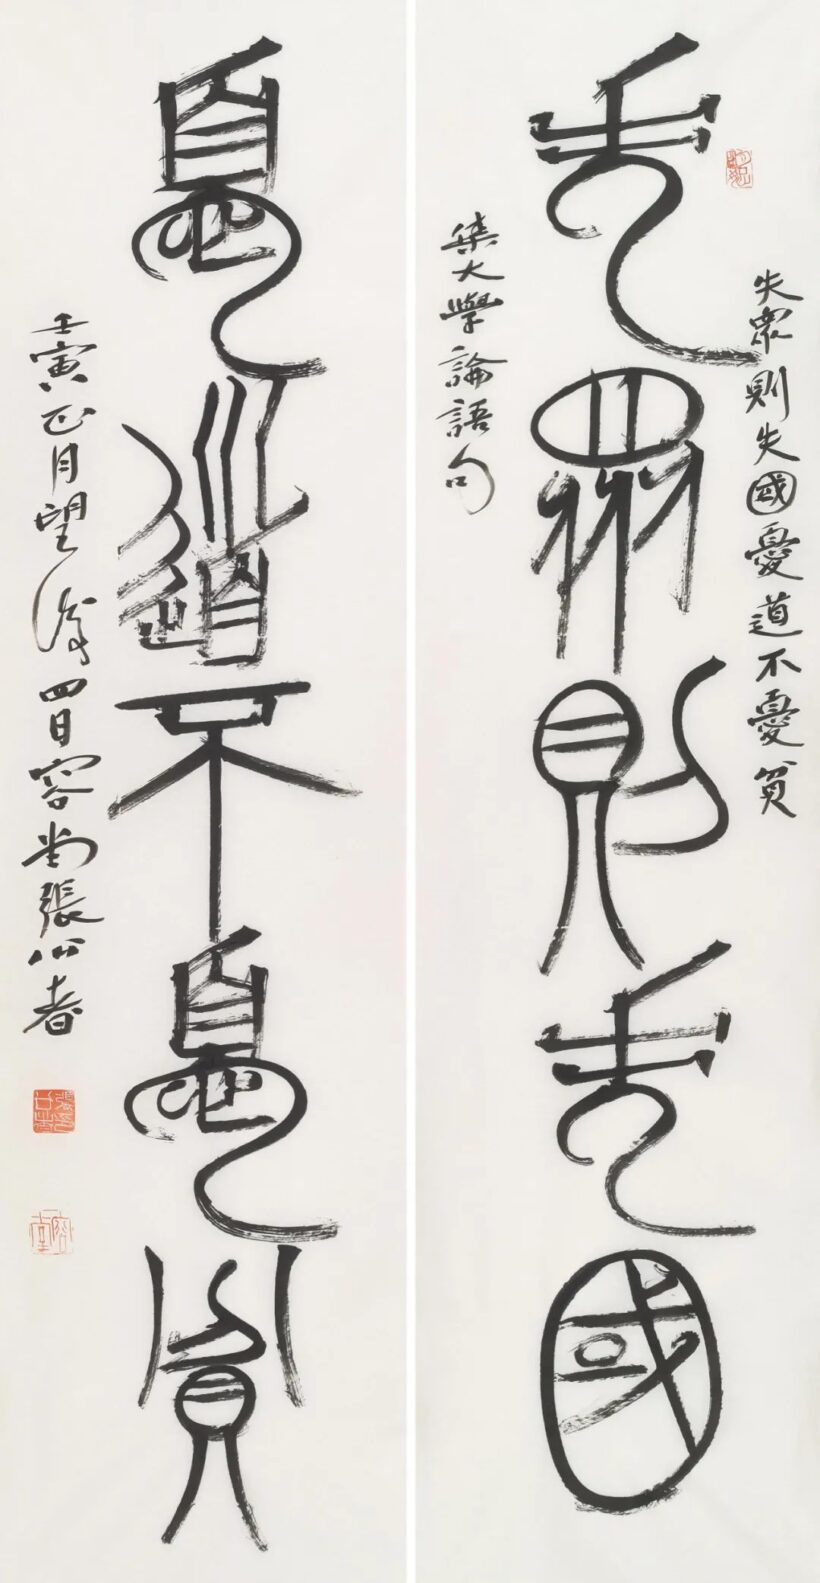 失眾則失國憂道不憂貧
失眾則失國
集大學論語句
憂道不憂貧
壬寅正月望後四日容堂張公者